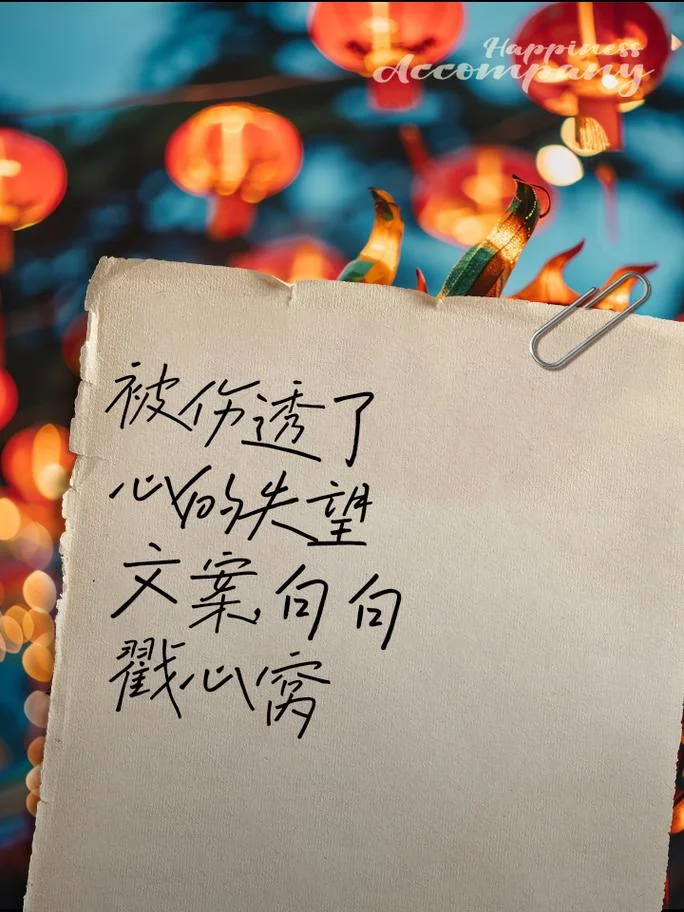 Happiness
Accompany
被伤透了
心的失望
文案,句句
戳心窝